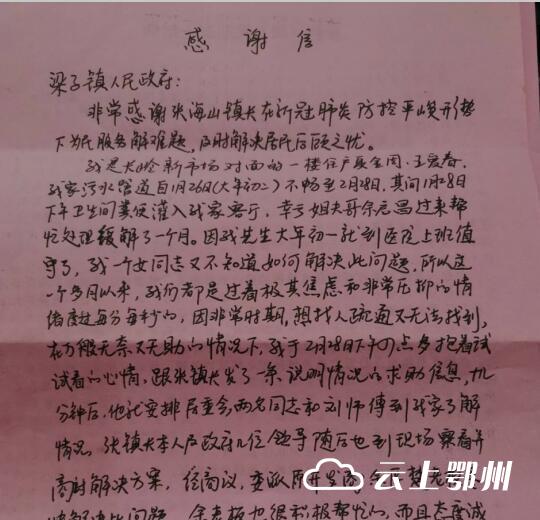 感谢信
梁子镇人民政府:
非常感谢张海山镇长在新冠肺炎防控平峻形势
下为民服务解难题,及时解决居民后顾之忧。
我是长岭新市场对面的一楼住户 周、王爱春,
我家污水管道自1月26日(大年初二)不畅至2月28日,其间1月28日
下午卫生间粪便灌入我家客厅,幸亏姐夫哥余启昌过来帮
忙处理缓解了一个月。因我先生大年初一就到医院上班值
守了,我一个女同志又不知道如何解决此问题,所以这
一个多月以来,我们都是过着极其焦虑和非常压抑的情
绪度过每分每秒的,因非常时期,想找人疏通又无法找到,
在万般无奈又无助的情况下,我于2月28日下午 点多抱着试
试看的心情,跟张镇长发了一条说明情况的求助信息,九
分钟后,他就安排居委会两名同志和刘师傅到我家了解
情况。张镇长本人及政府几位领导随后也到现场察看并
商讨解决方案,经商议,
快解决此问题 余老板也很积极帮忙的,而且态度诚
云上鄂州